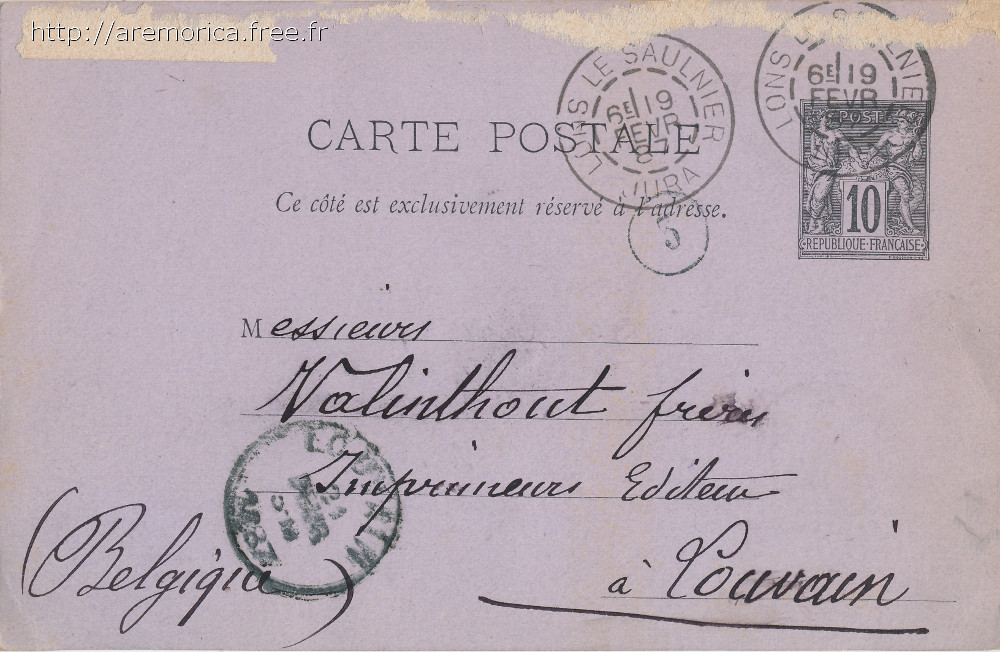 http://aremorica.free.fr
LONS LE SAULNIER
6E 19
FEVR
JURA
LONS
NIER
6E 19
FEVR
POSTE
10
RÉPUBLIQUE FRANÇAISE
CARTE POSTALE
Ce côté est exclusivement réservé à l'adresse.
5
Messieurs
Valinthout frères
Imprimeurs Editeur
à Louvain
(Belgique)
LOUVAIN
1887